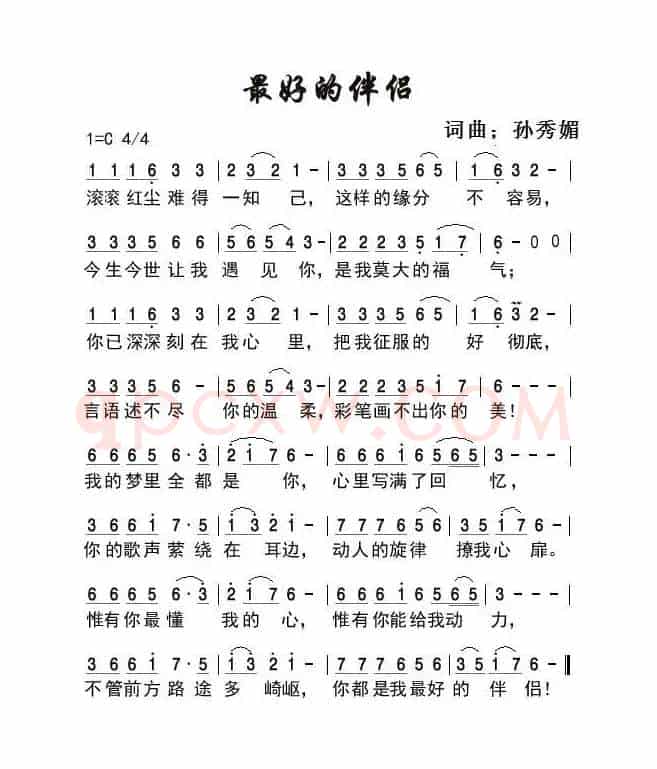 最好的伴侣
词曲：孙秀媚
1=C 4/4
1 1 1 6 3 3 | 2 3 2 1 - | 3 3 3 5 6 5 | 1 6 3 2 - |
滚滚红尘难得 一知 己， 这样的缘分 不 容易，
3 3 3 5 6 6 | 5 6 5 4 3 - | 2 2 2 3 5 1 7 | 6 - 0 0 |
今生今世让我 遇 见 你，是我莫大的福 气；
1 1 1 6 3 3 | 2 3 2 1 - | 3 3 3 5 6 5 | 1 6 3 2 - |
你已深深刻在 我心 里， 把我征服的 好 彻底，
3 3 3 5 6 - | 5 6 5 4 3 - | 2 2 2 3 5 1 7 | 6 - - - |
言语述不尽 你的温 柔，彩笔画不出你的 美！
qpcxw.COM
6 6 6 5 6 · 3 | 2 1 7 6 - | 6 6 6 1 6 5 6 5 | 3 - - - |
我的梦里全都是 你， 心里写满了回 忆，
3 6 6 1 7 · 5 | 1 3 2 1 - | 7 7 7 6 5 6 | 3 5 1 7 6 - |
你的歌声萦绕在 耳边， 动人的旋律 撩我心 扉。
6 6 6 5 6 · 3 | 2 1 7 6 - | 6 6 6 1 6 5 6 5 | 3 - - - |
惟有你最懂 我的 心， 惟有你能给我动 力，
3 6 6 1 7 · 5 | 1 3 2 1 - | 7 7 7 6 5 6 | 3 5 1 7 6 - ‖
不管前方路途多 崎岖， 你都是我最好的 伴 侣！